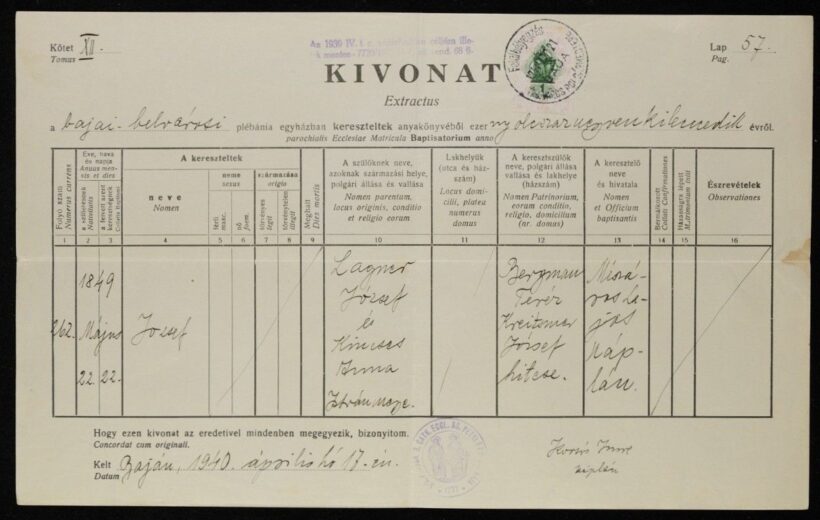 Kötet XII.
Tomus
Lap 57.
Pag.
KIVONAT
Extractus
a bajai-belvárosi plébánia egyházban kereszteltek anyakönyvéből ezer nyolcszáznegyvenkilencedik évről.
parochialis Ecclesiae Matricula Baptisatorium anno
Folyó szám
Numerus currens
Éve, hava
és napja
Annus mensis et dies
a születésnek
Nativitatis
a szent keresztségnek
Collatis Baptismi
A kereszteltek
neve
Nomen
neme
sexus
férfi
masc.
nő
foem.
származása
origo
törvényes
legit
törvénytelen
illegit
Meghalt
Dies mortis
A szülőknek neve,
azoknak származási helye,
polgári állása
és vallása
Nomen parentum,
locus originis, conditio
et religio eorum
Lakhelyük
(utca és házszám)
Locus domicilii, platea
numerus
domus
A keresztszülők
neve, polgári állása
vallása és lakhelye
(házszám)
Nomen Patrinorium,
eorum conditio,
religio, domicilium
(nr. domus)
A keresztelő
neve
és hivatala
Nomen
et Officium
baptisantis
Bérmálkozott
Collata Confirmationes
Házasságra lépett
Matrimonium iniit
Észrevételek
Observationes
1 2 3 4 5 6 7 8 9 10 11 12 13 14 15 16
262.
1849
Május
22. 22.
József
Lagner
József
és
Kincses
Anna
István megye.
Bergman
Teréz
Kreitzmer
József
hitese.
Mészáros Lajos
Káplán.
Hogy ezen kivonat az eredetivel mindenben megegyezik, bizonyitom.
Concordat cum originali.
Kelt Baján, 1940. április hó 17-én.
Datum
Kovács Imre
káplán